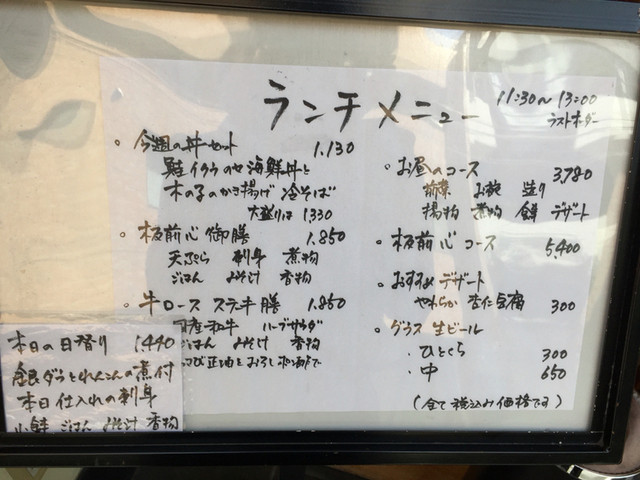 ランチメニュー 11:30〜13:00
ラストオーダー
・今週の丼セット 1.130
鮭イクラのせ海鮮丼と
木の子のかき揚げ 冷そば
大盛りは 1330
・板前心御膳 1.850
天ぷら 刺身 煮物
ごはん みそ汁 香物
・牛ロースステーキ膳 1.850
国産和牛 ハーブサラダ
ごはん みそ汁 香物
わさび正油とおろしポン酢で
本日の日替り 1,440
銀ダラとれんこんの煮付
本日仕入れの刺身
小鉢 ごはん みそ汁 香物
・お昼のコース 3,780
前菜 お椀 造り
揚物 煮物 食事 デザート
・板前心コース 5,400
・おすすめデザート
やわらか 杏仁豆腐 300
・グラス生ビール
・ひとくち 300
・中 650
(全て税込み価格です)